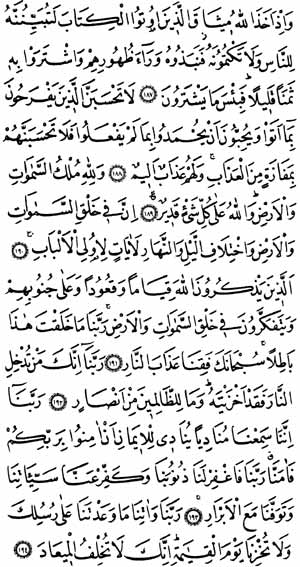 وَإِذْ أَخَذَ اللّٰهُ مِيثَاقَ الَّذِينَ أُوتُوا الْكِتَابَ لَتُبَيِّنُنَّهُ
لِلنَّاسِ وَلَا تَكْتُمُونَهُ فَنَبَذُوهُ وَرَاءَ ظُهُورِهِمْ وَاشْتَرَوْا بِهِ
ثَمَنًا قَلِيلًا فَبِئْسَ مَا يَشْتَرُونَ ﴿١٨٧﴾ لَا تَحْسَبَنَّ الَّذِينَ يَفْرَحُونَ
بِمَا أَتَوْا وَيُحِبُّونَ أَنْ يُحْمَدُوا بِمَا لَمْ يَفْعَلُوا فَلَا تَحْسَبَنَّهُمْ
بِمَفَازَةٍ مِنَ الْعَذَابِ وَلَهُمْ عَذَابٌ أَلِيمٌ ﴿١٨٨﴾ وَلِلّٰهِ مُلْكُ السَّمٰوَاتِ
وَالْأَرْضِ وَاللّٰهُ عَلٰى كُلِّ شَيْءٍ قَدِيرٌ ﴿١٨٩﴾ إِنَّ فِي خَلْقِ السَّمٰوَاتِ
وَالْأَرْضِ وَاخْتِلَافِ اللَّيْلِ وَالنَّهَارِ لَآيَاتٍ لِأُولِي الْأَلْبَابِ ﴿١٩٠﴾
الَّذِينَ يَذْكُرُونَ اللّٰهَ قِيَامًا وَقُعُودًا وَعَلٰى جُنُوبِهِمْ
وَيَتَفَكَّرُونَ فِي خَلْقِ السَّمٰوَاتِ وَالْأَرْضِ رَبَّنَا مَا خَلَقْتَ هٰذَا
بَاطِلًا سُبْحَانَكَ فَقِنَا عَذَابَ النَّارِ ﴿١٩١﴾ رَبَّنَا إِنَّكَ مَنْ تُدْخِلِ
النَّارَ فَقَدْ أَخْزَيْتَهُ وَمَا لِلظَّالِمِينَ مِنْ أَنْصَارٍ ﴿١٩٢﴾ رَبَّنَا
إِنَّنَا سَمِعْنَا مُنَادِيًا يُنَادِي لِلْإِيمَانِ أَنْ آمِنُوا بِرَبِّكُمْ
فَآمَنَّا رَبَّنَا فَاغْفِرْ لَنَا ذُنُوبَنَا وَكَفِّرْ عَنَّا سَيِّئَاتِنَا
وَتَوَفَّنَا مَعَ الْأَبْرَارِ ﴿١٩٣﴾ رَبَّنَا وَآتِنَا مَا وَعَدْتَنَا عَلٰى رُسُلِكَ
وَلَا تُخْزِنَا يَوْمَ الْقِيٰمَةِ إِنَّكَ لَا تُخْلِفُ الْمِيعَادَ ﴿١٩٤﴾